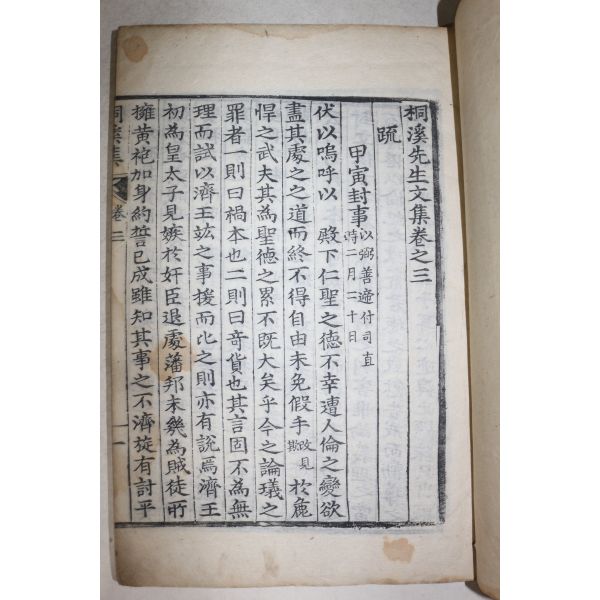 桐溪先生文集卷之三
疏
甲寅封事 以弼善遞付司直 時二月二十日
伏以嗚呼以 殿下仁聖之德不幸遭人倫之變欲
盡其處之之道而終不得自由未免假手 改見欺 於麁
悍之武夫其為聖德之累不既大矣乎今之論㼁之
罪者一則曰禍本也二則曰奇貨也其言固不為無
理而試以濟王竑之事援而比之則亦有說焉濟王
初為皇太子見嫉於奸臣退處藩邦未幾為賊徒所
擁黃袍加身約誓已成雖知其事之不濟旋有討平
桐溪集 卷三 一